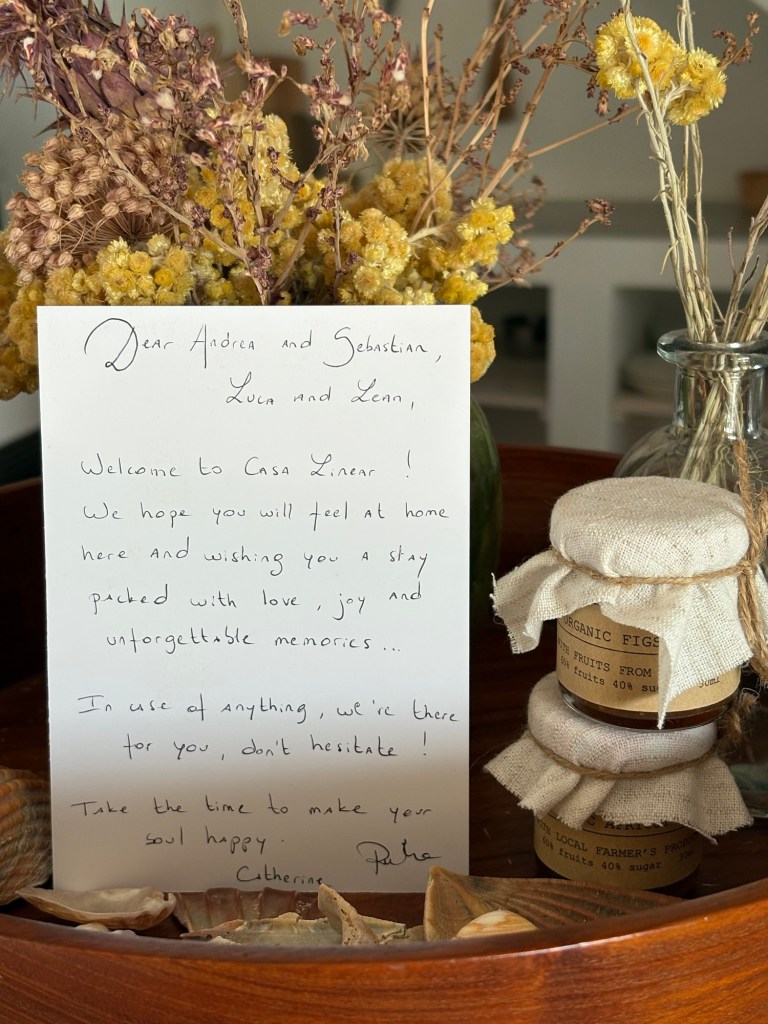 Dear Andrea and Sebastian,
Luca and Lean,
Welcome to Casa Linear !
We hope you will feel at home
here and wishing you a stay
packed with love, joy and
unforgettable memories...
In use of anything, we're there
for you, don't hesitate !
Take the time to make your
soul happy.
Catherine
ORGANIC FIGS
FRUITS FROM
60% fruits 40% su
90ml
LOCAL FARMER'S
60% fruits 40% sugar